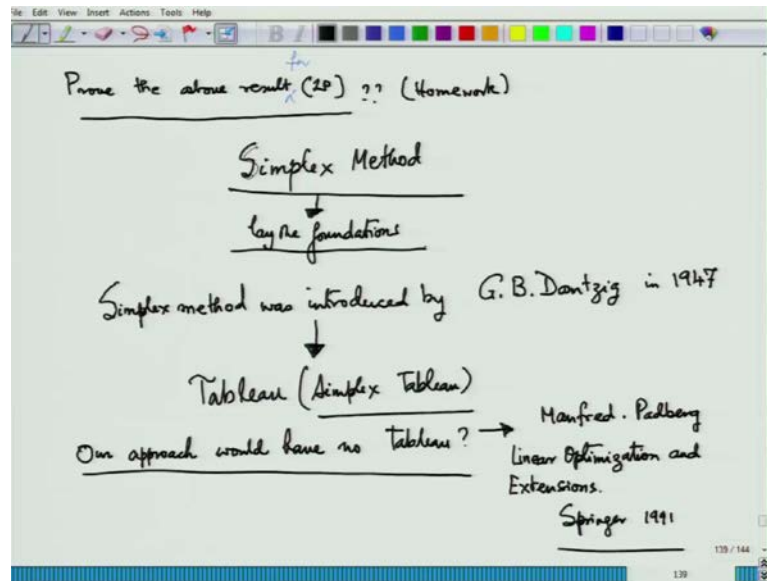 File Edit View Insert Actions Tools Help
for
Prove the above result (LP) ?? (Homework)
Simplex Method
lay the foundations
Simplex method was introduced by G. B. Dantzig in 1947
Tableau (Simplex Tableau)
Our approach would have no Tableau?
Manfred. Padberg
Linear Optimization and
Extensions.
Springer 1991
139 / 144
139